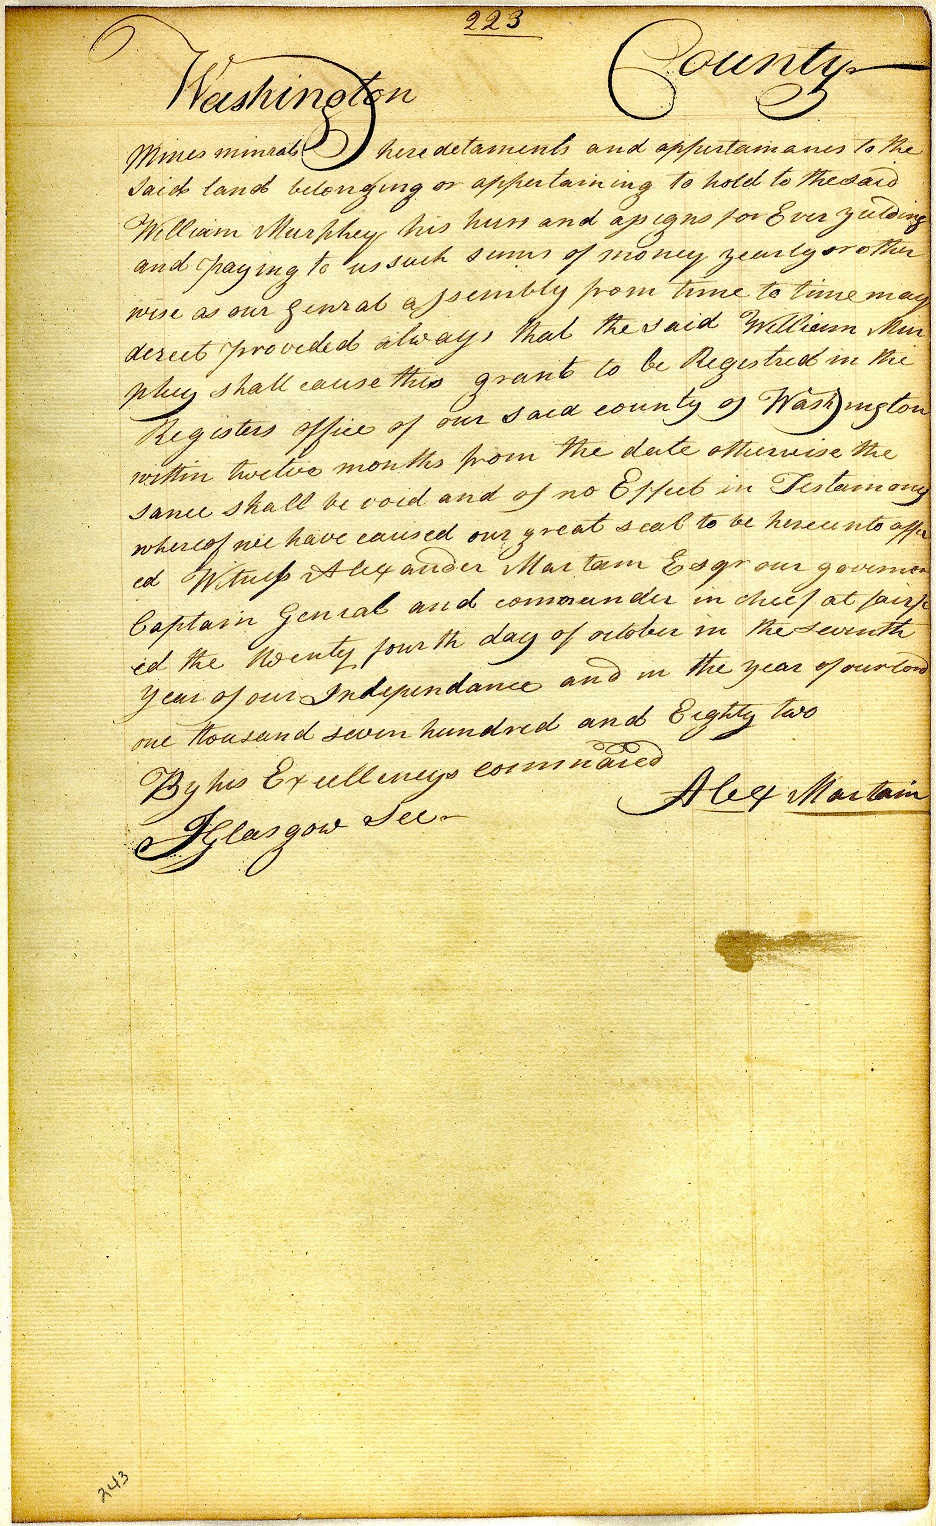 223
Washington County
Mines minrals heredetaments and appertamanes to the
Said land belonging or appertaining to hold to the said
William Murphey his heirs and assigns for Ever yielding
and paying to us such sums of money yearly or other
wise as our genral assembly from time to time may
derect provided always that the said William Mur
phey shall cause this grant to be Registred in the
Registers office of our said county of Washington
within twelve months from the date otherwise the
same shall be void and of no Effect in Testamony
whereof we have caused our great seal to be hereunto affix
ed Witness Alexander Martain Esqr our governor
Captain Genral and commander in cheif at fairf
ed the twenty fourth day of october in the seventh
year of our Independance and in the year of our lord
one thousand seven hundred and Eighty two
By his Excellencys command
Alex Martain
J Glasgow Sec
243